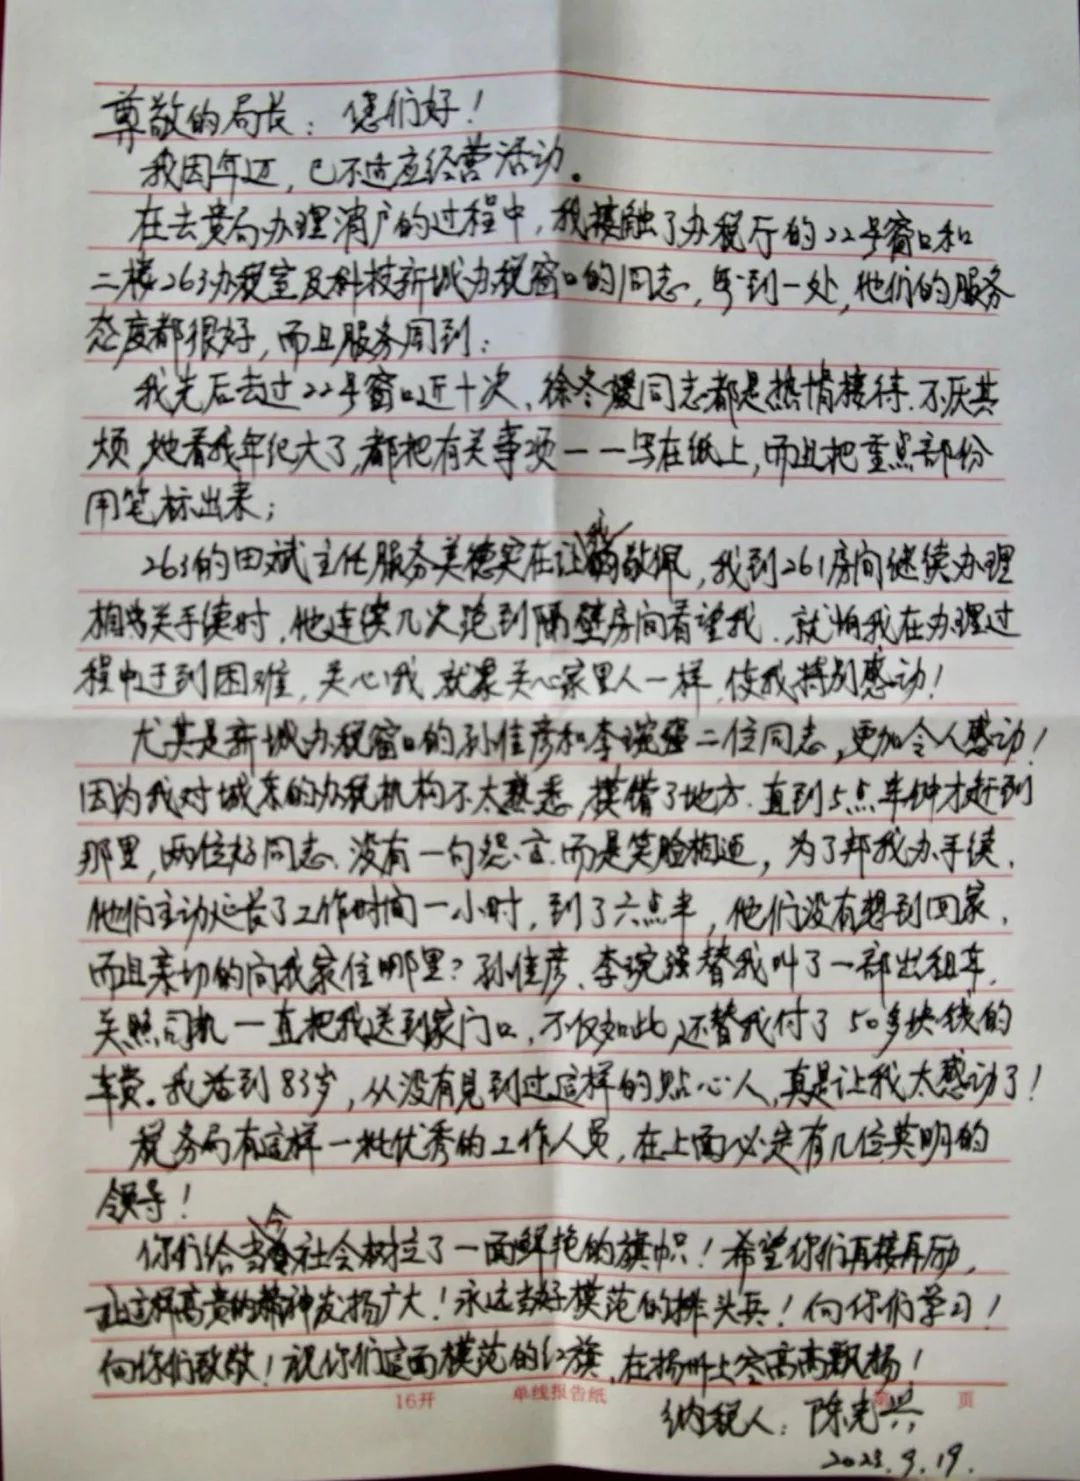 尊敬的局长：您们好！
我因年迈，已不适应经营活动。
在去贵局办理消户的过程中，我接触了办税厅的22号窗口和
二楼263办税室及科技新城办税窗口的同志，每到一处，他们的服务
态度都很好，而且服务周到：
我先后去过22号窗口近十次、徐冬媛同志都是热情接待、不厌其
烦，她看我年纪大了，都把有关事项一一写在纸上，而且把重点部份
用笔标出来；
263的田斌主任服务美德实在让我敬佩，我到261房间继续办理
相关手续时，他连续几次跑到隔壁房间看望我、就怕我在办理过
程中迂到困难，关心我就象关心家里人一样，使我特别感动！
尤其是新城办税窗口的孙佳彦和李琬强二位同志，更加令人感动！
因为我对城东的办税机构不太熟悉，摸错了地方、直到5点半钟才赶到
那里，两位好同志、没有一句怨言、而是笑脸相迎，为了帮我办手续、
他们主动延长了工作时间一小时，到了六点半，他们没有想到回家、
而且亲切的问我家住哪里？孙佳彦、李琬强替我叫了一部出租车、
关照司机一直把我送到家门口，不仅如此，还替我付了50多块钱的
车费。我活到83岁，从没有见到过这样的贴心人，真是让我太感动了！
税务局有这样一批优秀的工作人员，在上面必定有几位英明的
领导！
你们给当今社会树立了一面鲜艳的旗帜！希望你们再接再励，
让这种高贵的精神发扬广大！永远当好模范的排头兵！向你们学习！
向你们致敬！祝你们这面模范的红旗，在扬州上空高高飘扬！
16开 单线报告纸 第 页
纳税人：陈光兴
2023.9.19.